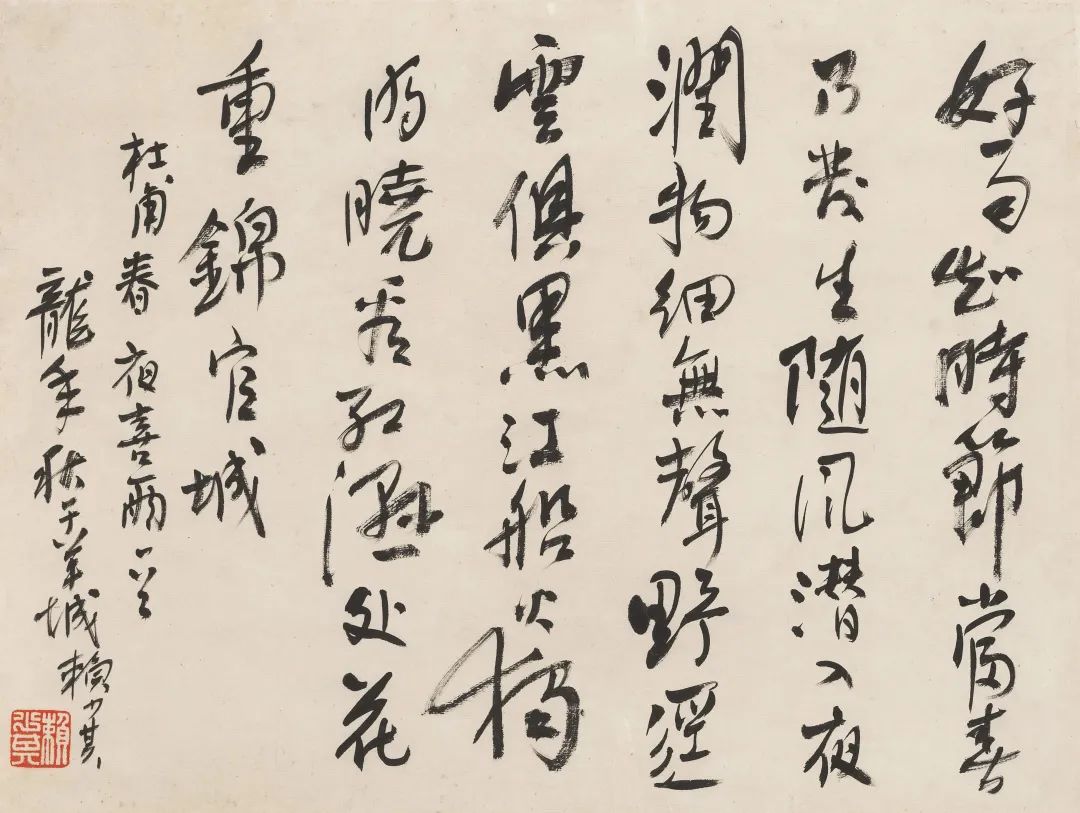 好雨知時節當春
乃發生随风潛入夜
潤物細無聲野徑
雲俱黑江船火獨
明曉看紅濕处花
重錦官城
杜甫春夜喜雨
龍年秋于羊城賴少其
賴少其